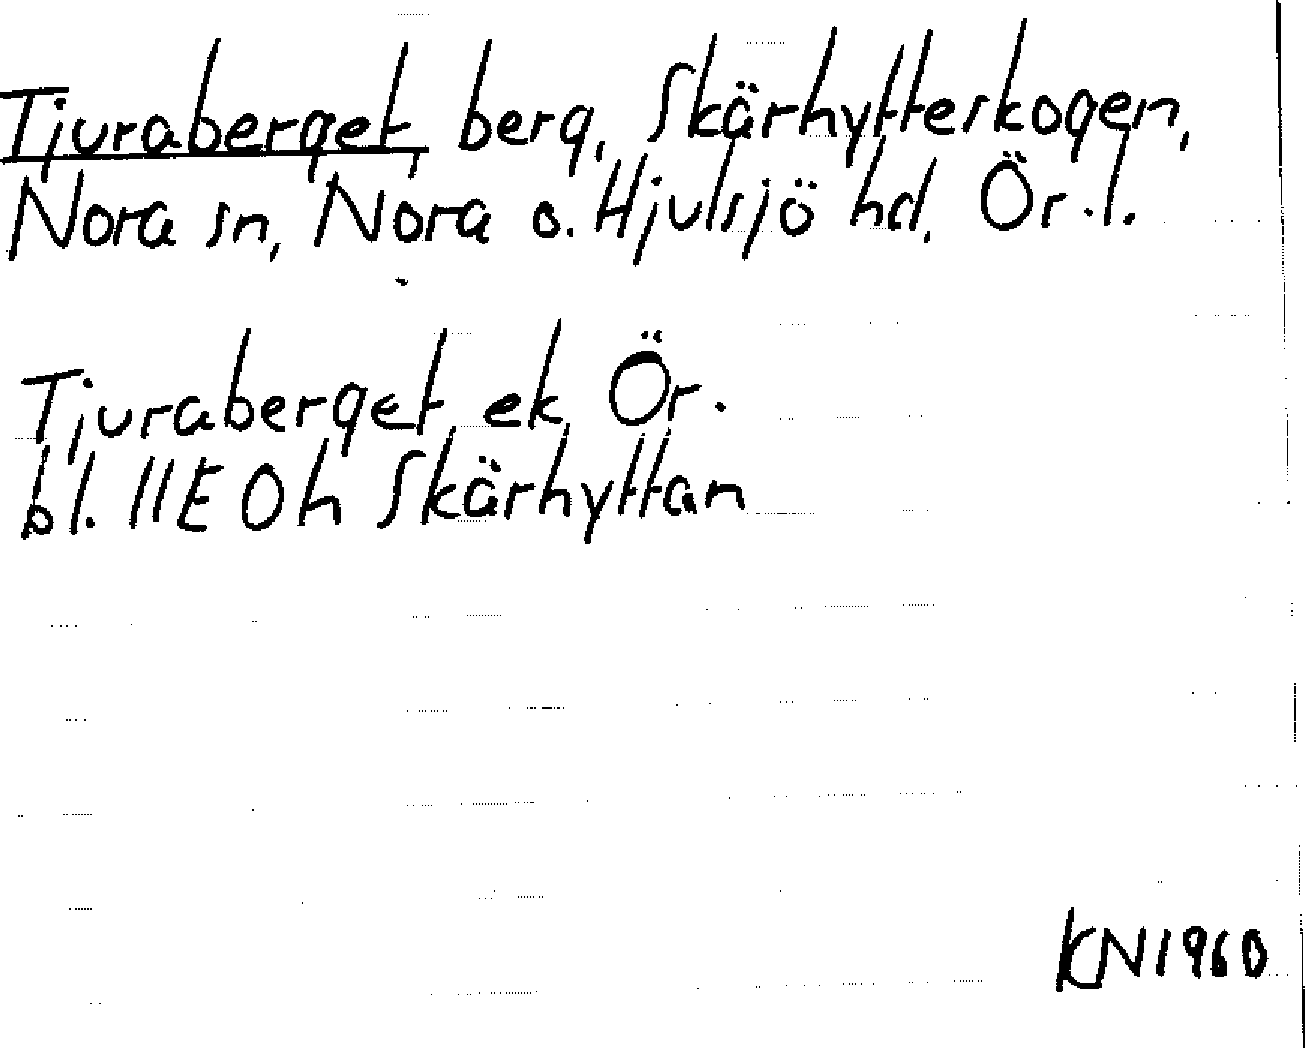 Tjuraberget, berg, Skärhytteskogen,
Nora sn, Nora o. Hjulsjö hd, Ör. l.
Tjuraberget ek, Ör.
bl. 11E 0h Skärhyttan
KN1960